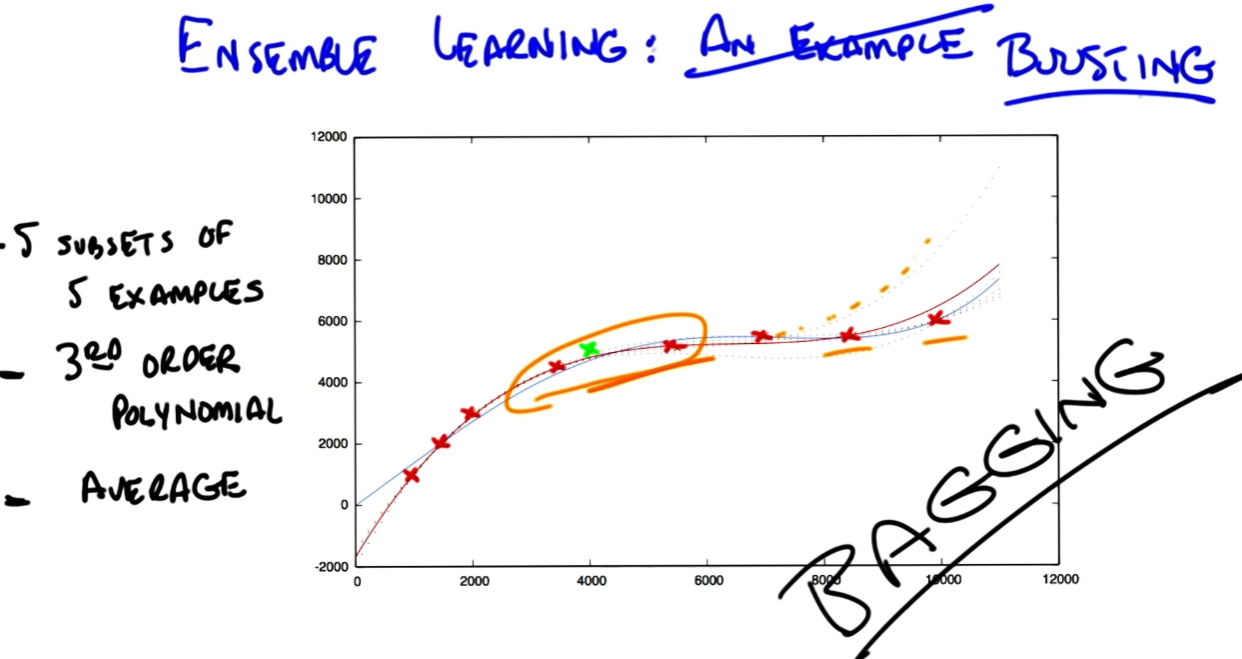 ENSEMBLE LEARNING: AN EXAMPLE BOOSTING
- 5 SUBSETS OF
5 EXAMPLES
- 3RD ORDER
POLYNOMIAL
- AVERAGE
12000
10000
8000
6000
4000
2000
0
-2000
0 2000 4000 6000 8000 10000 12000
BAGGING